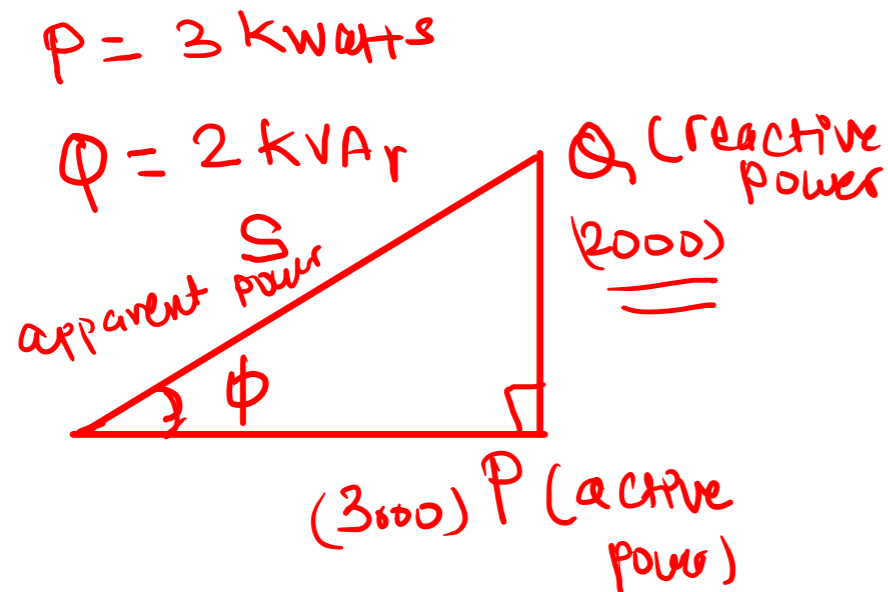 P = 3 KWatts
Q = 2 KVAr
Q (reactive
power
(2000)
S
apparent power
ϕ
(3000) P (active
power)